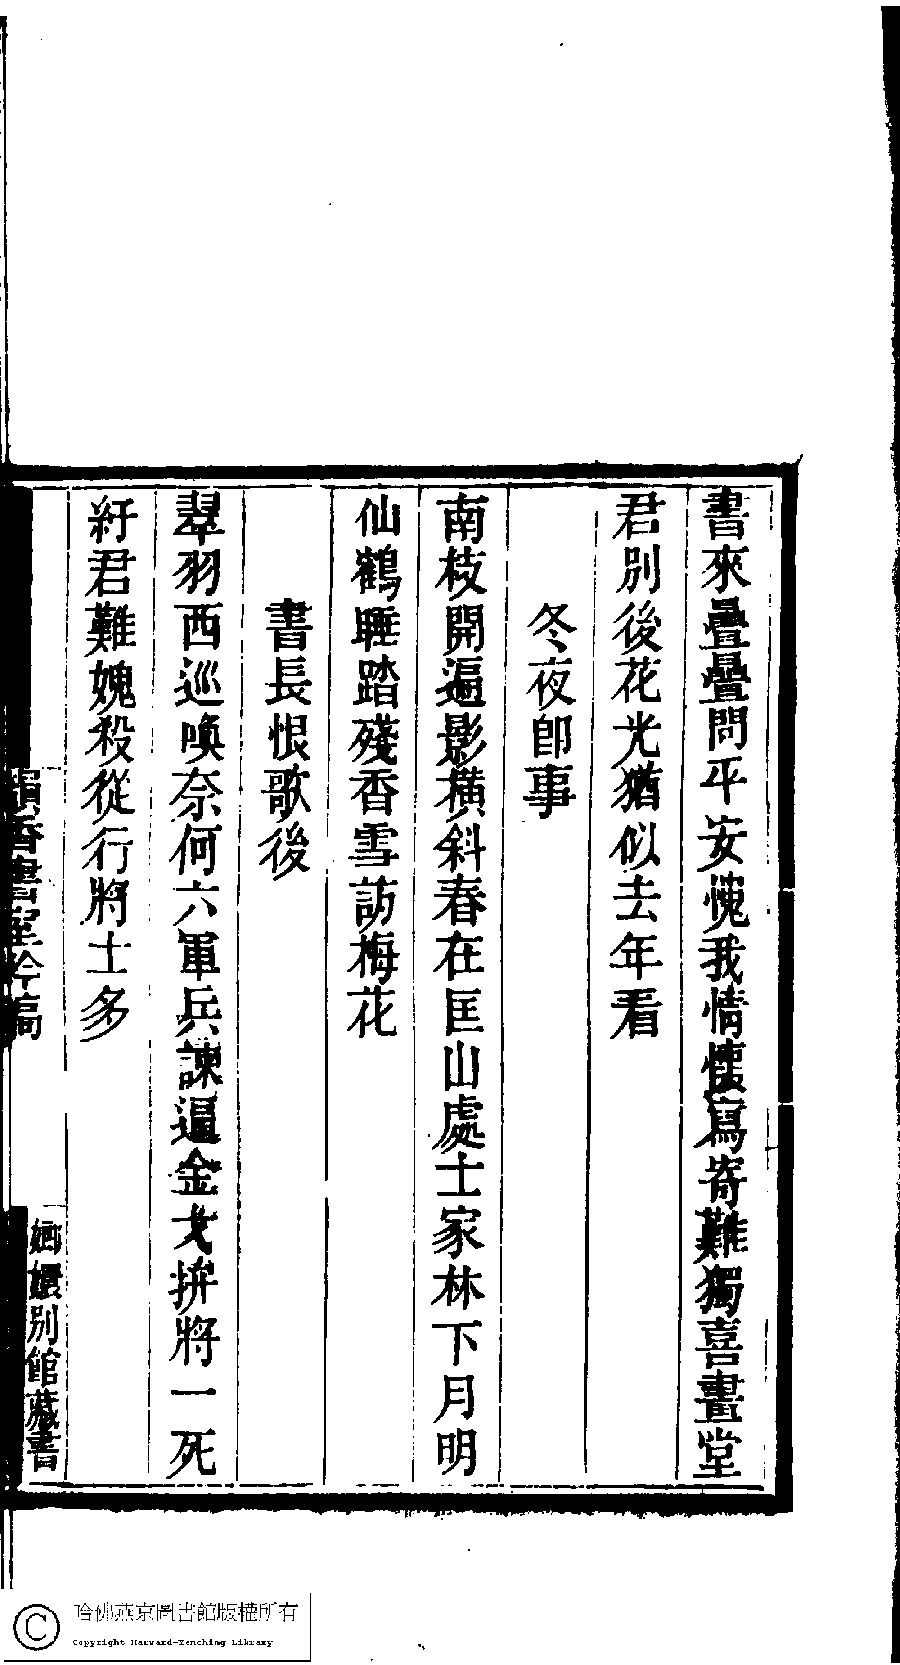 書來疊疊問平安愧我情懷寫寄難獨喜畫堂
君別後花光猶似去年看
冬夜卽事
南枝開遍影橫斜春在匡山處士家林下月明
仙鶴睡踏殘香雪訪梅花
書長恨歌後
翠羽西巡喚奈何六軍兵諫逼金戈拚將一死
紓君難媿殺從行將士多
韻香書室吟稿
嫏嬛別館藏書
哈佛燕京圖書館版權所有
Copyright Harvard-Yenching Library